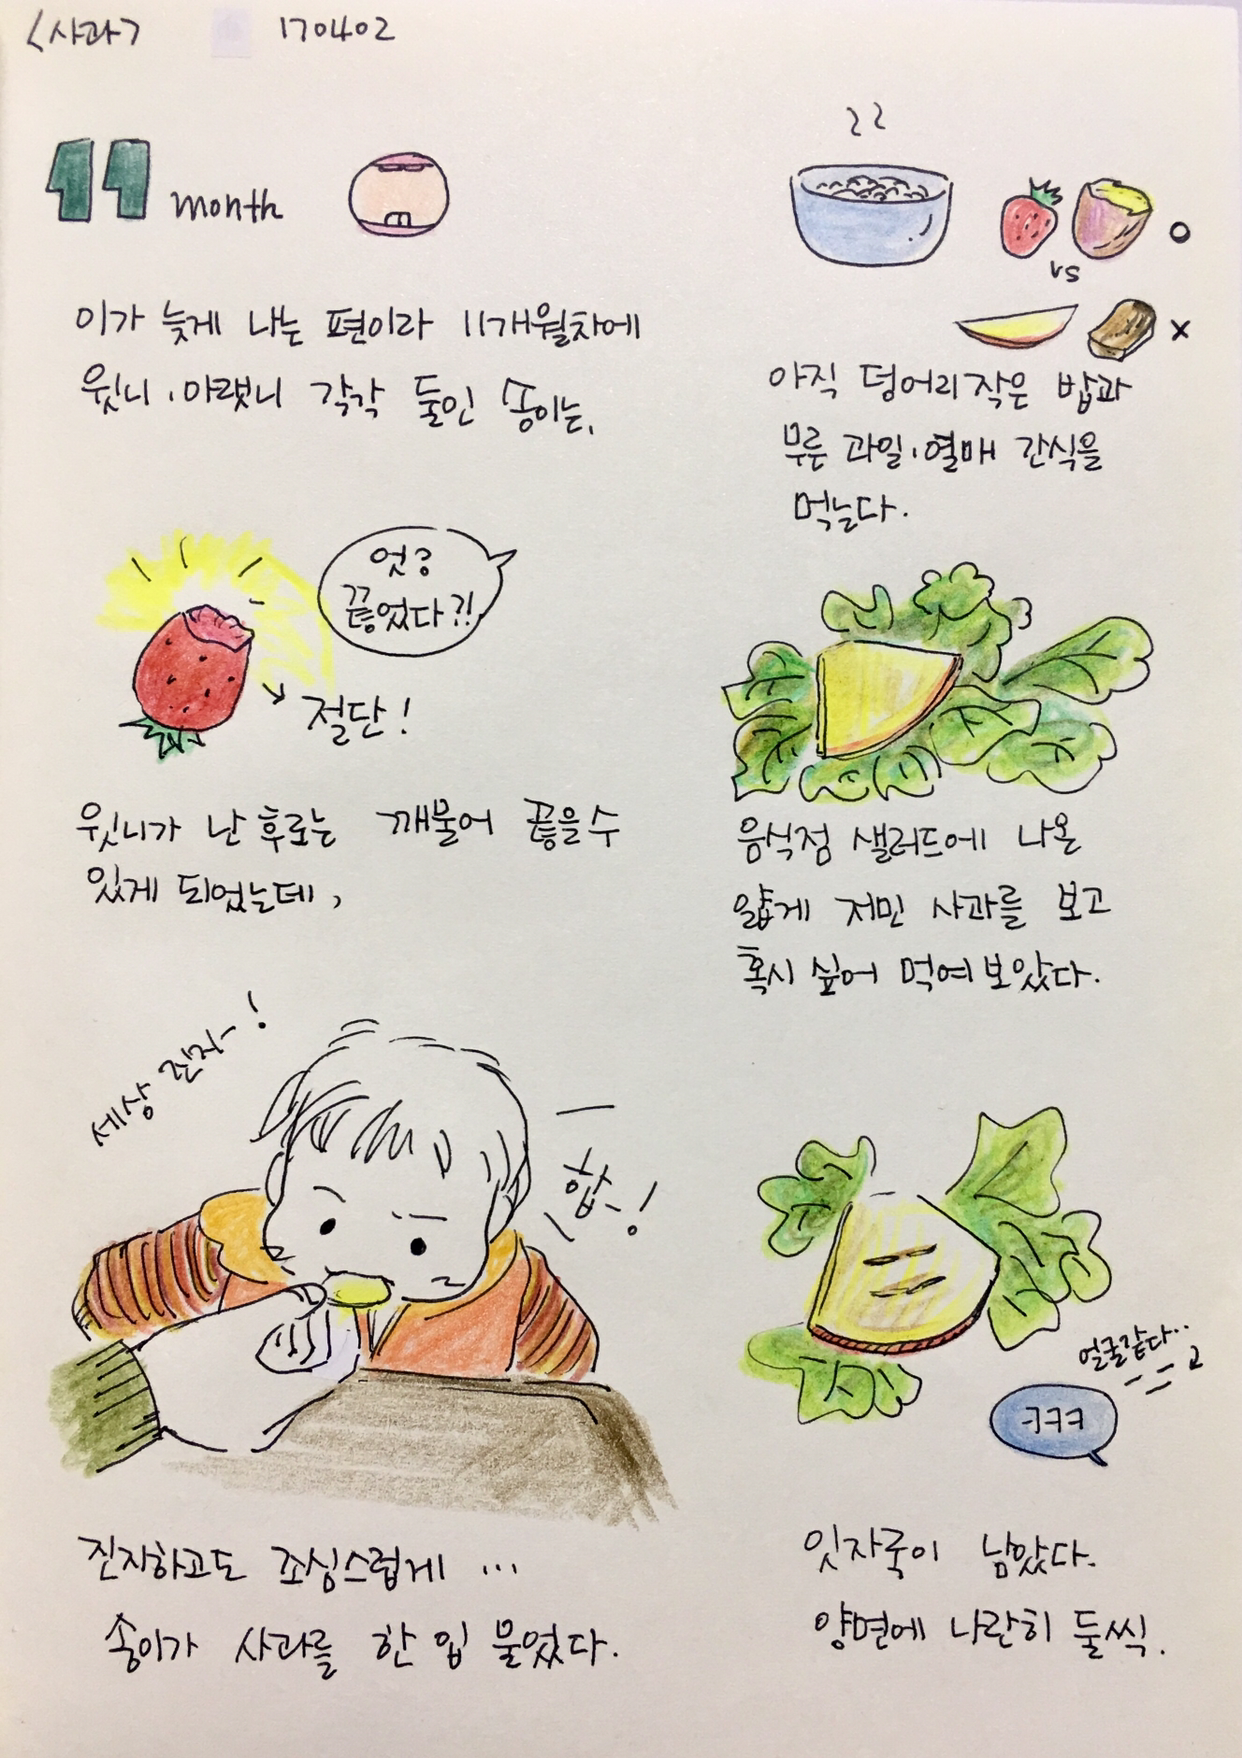 <사과> 170402
11 month
이가 늦게 나는 편이라 11개월차에
윗니·아랫니 각각 둘인 송이는,
vs
아직 덩어리 작은 밥과
무른 과일·열매 간식을
먹는다.
엇?
끊었다?!
절단!
윗니가 난 후로는 깨물어 끊을 수
있게 되었는데,
음식점 샐러드에 나온
얇게 저민 사과를 보고
혹시 싶어 먹여 보았다.
세상 진지~!
합~!
진지하고도 조심스럽게 ...
송이가 사과를 한 입 물었다.
얼굴같다..
ㅋㅋㅋ
잇자국이 남았다.
양면에 나란히 둘씩.